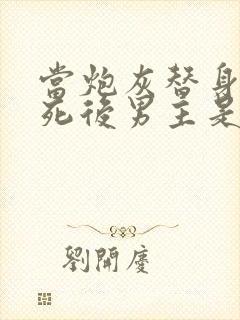 當炮灰替身
死後男主是
劉開慶